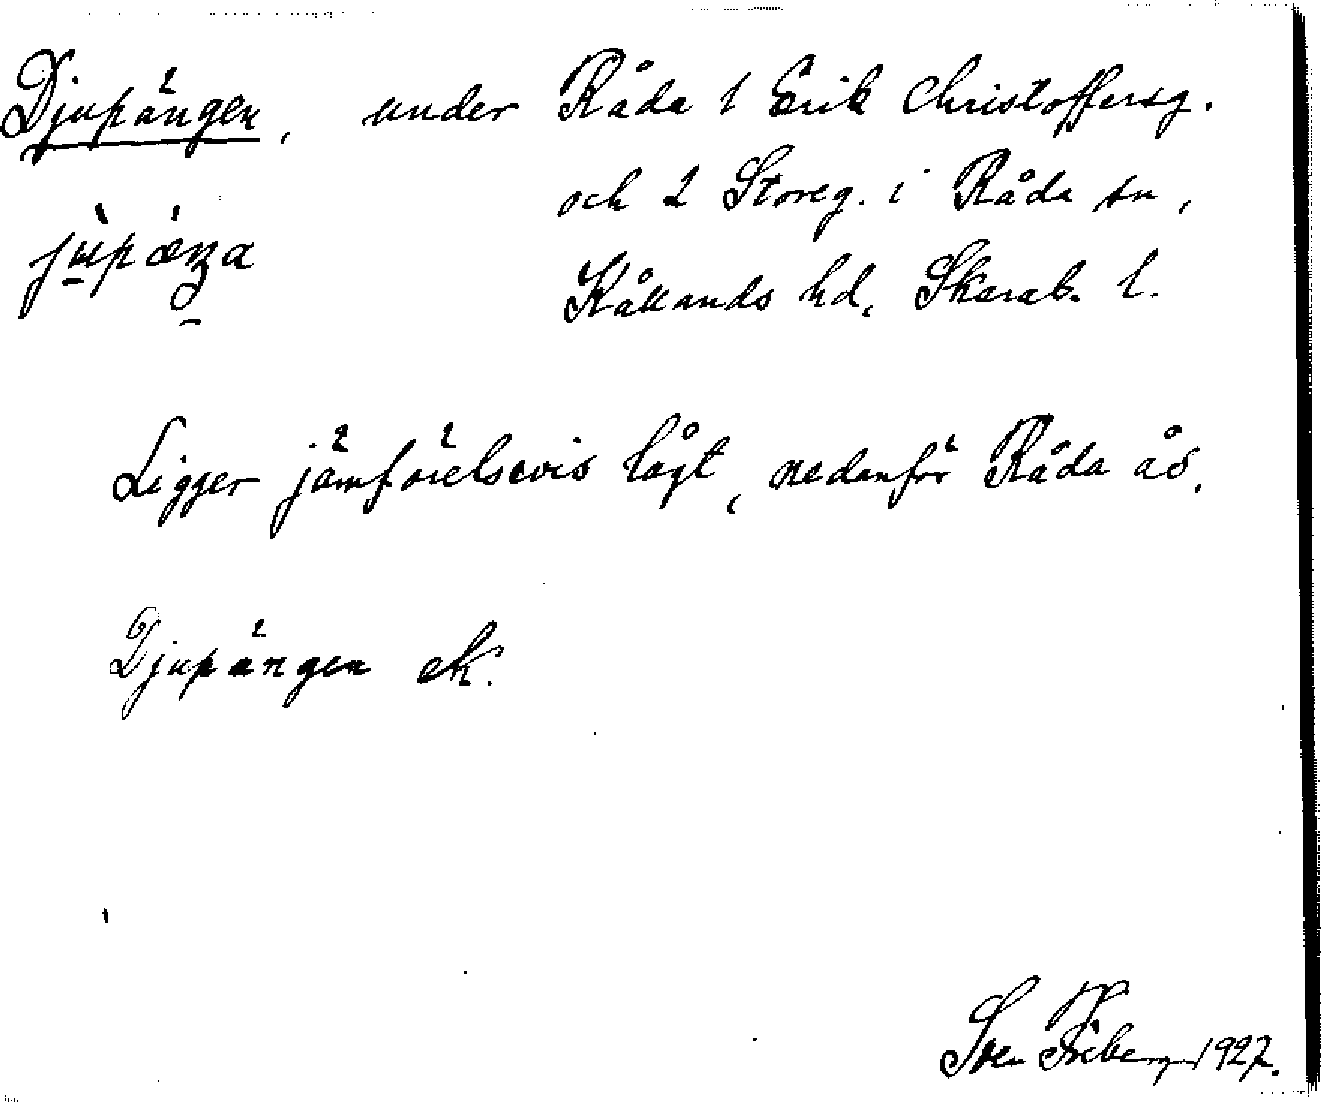 Djupängen, under Råda 1 Erik Christoffersg.
och 2 Storeg. i Råda sn,
Kållands hd, Skarab. l.
Ligger jämförelsevis lågt, nedanför Råda ås.
Djupängen ek.
Sven 1927.